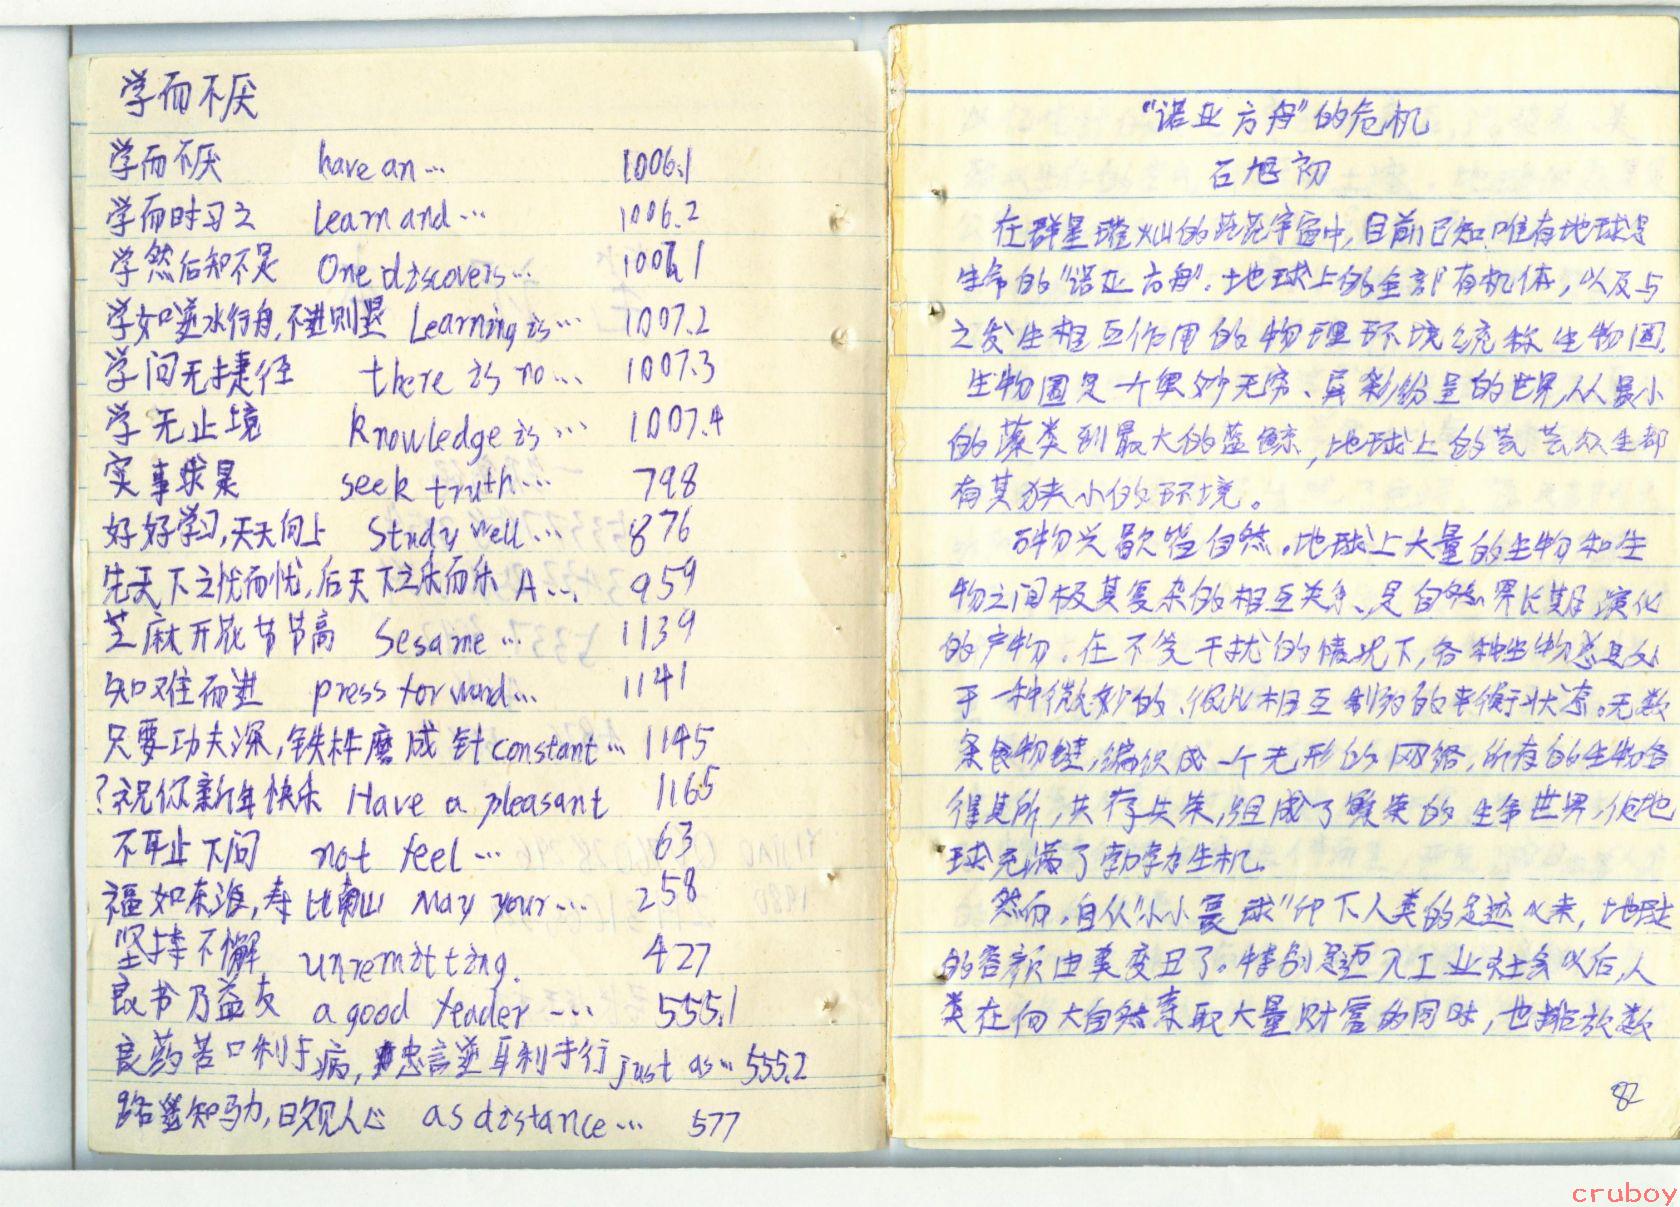 学而不厌
学而不厌 have an... 1006.1
学而时习之 Learn and... 1006.2
学然后知不足 One discovers... 1007.1
学如逆水行舟,不进则退 Learning is... 1007.2
学问无捷径 there is no... 1007.3
学无止境 knowledge is... 1007.4
实事求是 seek truth... 798
好好学习,天天向上 Study well... 876
先天下之忧而忧,后天下之乐而乐 A... 959
芝麻开花节节高 Sesame... 1139
知难而进 press forward... 1141
只要功夫深,铁杵磨成针 constant... 1145
?祝你新年快乐 Have a pleasant 1165
不耻下问 not feel... 63
福如东海,寿比南山 May your... 258
坚持不懈 unremitting. 427
良书乃益友 a good reader ... 555.1
良药苦口利于病,忠言逆耳利于行 just as... 555.2
路遥知马力,日久见人心 as distance... 577
“诺亚方舟”的危机
石旭初
在群星璀灿的茫茫宇宙中,目前已知唯有地球是
生命的“诺亚方舟”.地球上的全部有机体,以及与
之发生相互作用的物理环境统称生物圈.
生物圈是个奥妙无穷、异彩纷呈的世界,从最小
的藻类到最大的蓝鲸,地球上的芸芸众生都
有其狭小的环境。
万物兴歇皆自然。地球上大量的生物和生
物之间极其复杂的相互关系、是自然界长期演化
的产物.在不受干扰的情况下,各种生物总是处
于一种微妙的、彼此相互制约的平衡状态。无数
条食物链,编织成一个无形的网络,所有的生物各
得其所,共存共荣,组成了繁荣的生命世界,使地
球充满了勃勃生机.
然而,自从“小小寰球”印下人类的足迹以来,地球
的容颜由美变丑了。特别是迈入工业社会以后,人
类在向大自然索取大量财富的同时,也排放数
82
cruboy